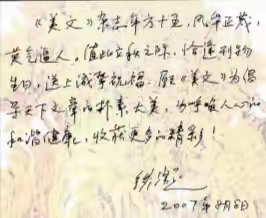 《美文》杂志年方十五,风华正茂,
英气逼人。值此立秋之际,恰逢刊物
生日,送上诚挚祝福。愿《美文》为倡
导天下文章的朴素大美,为呼唤人心的
和谐健康,收获更多的精彩!
2007年8月8日